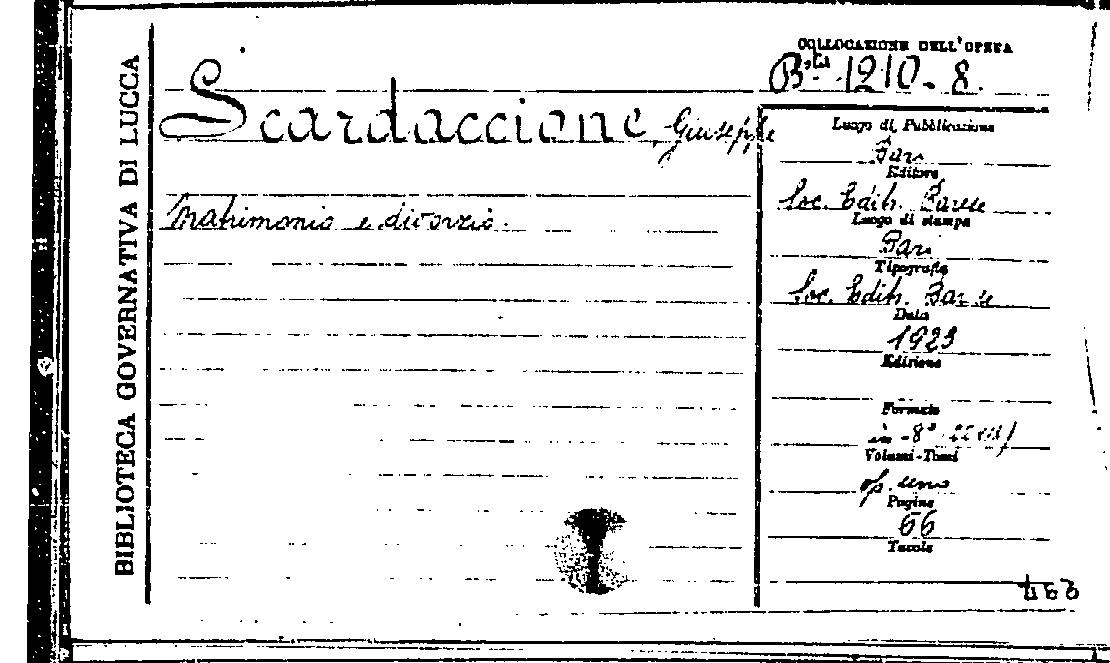 BIBLIOTECA GOVERNATIVA DI LUCCA
COLLOCAZIONE DELL'OPERA
B.ta 1210-8.
Scardaccione, Giuseppe
Matrimonio e divorzio.
Luogo di Pubblicazione
Bari
Editore
Soc. Edit. Barese
Luogo di stampa
Bari
Tipografia
Soc. Edit. Barese
Data
1923
Edizione
Formato
in-8°
Volumi-Tomi
op. uno
Pagine
66
Tavole